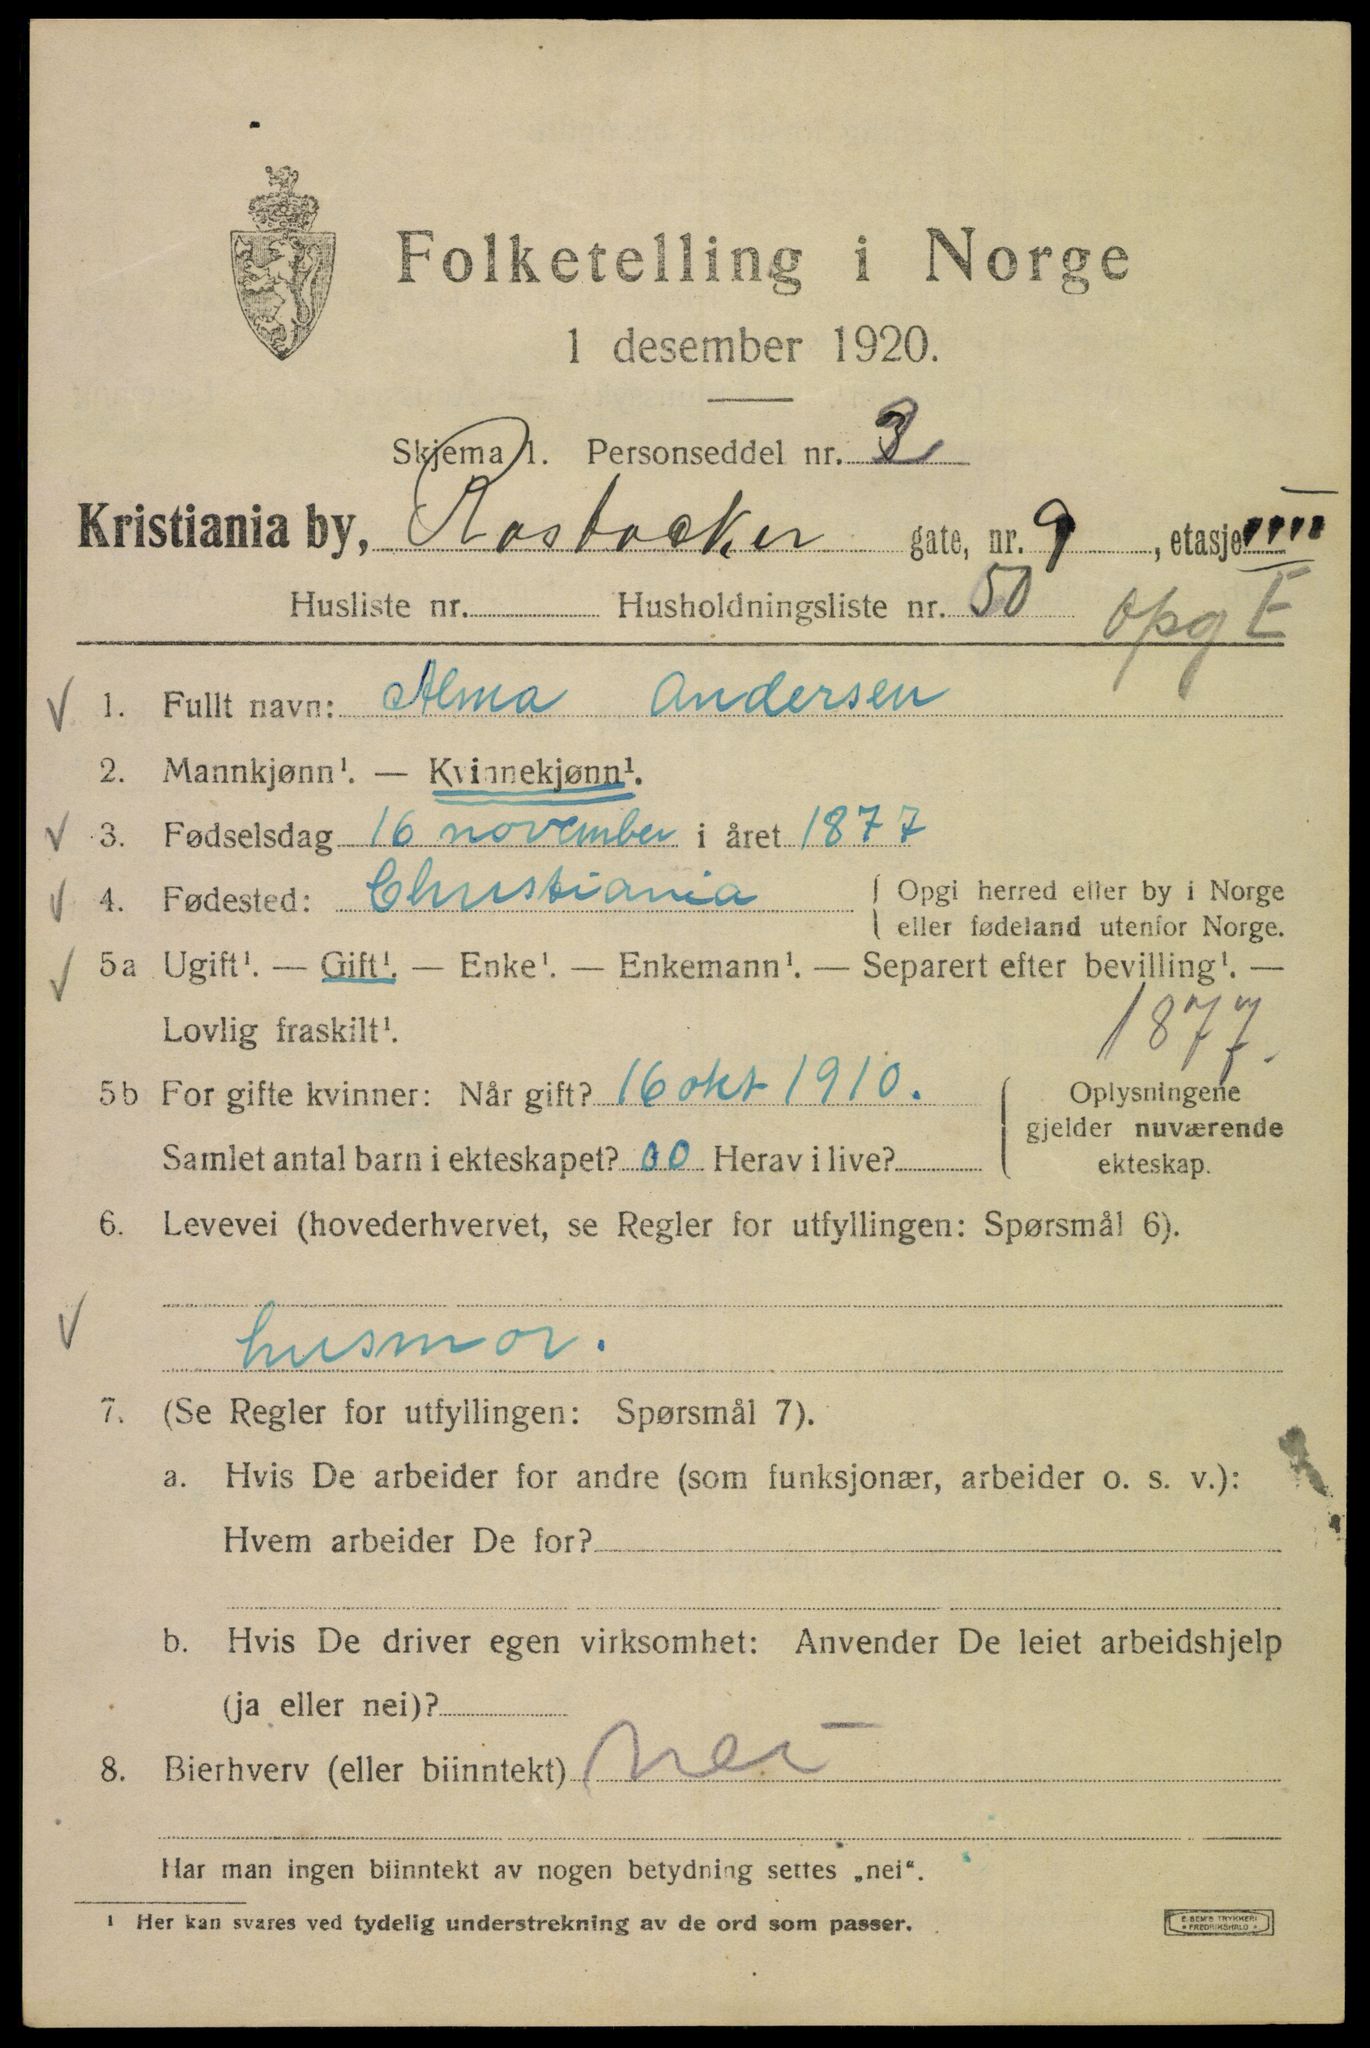 Folketelling i Norge
1 desember 1920.
Skjema 1. Personseddel nr.
Kristiania by, Rostocker gate, nr. 9, etasje
Husliste nr. Husholdningsliste nr. 50 opg E
1. Fullt navn: Alma Andersen
2. Mannkjønn¹. — Kvinnekjønn¹.
3. Fødselsdag 16 november i året 1877
4. Fødested: Christiania { Opgi herred eller by i Norge
eller fødeland utenfor Norge.
5a Ugift¹. — Gift¹. — Enke¹. — Enkemann¹. — Separert efter bevilling¹. —
Lovlig fraskilt¹. 1877.
5b For gifte kvinner: Når gift? 16 okt 1910. { Oplysningene
gjelder nuværende
Samlet antal barn i ekteskapet? 00 Herav i live? ekteskap.
6. Levevei (hovederhvervet, se Regler for utfyllingen: Spørsmål 6).
husmor.
7. (Se Regler for utfyllingen: Spørsmål 7).
a. Hvis De arbeider for andre (som funksjonær, arbeider o. s. v.):
Hvem arbeider De for?
b. Hvis De driver egen virksomhet: Anvender De leiet arbeidshjelp
(ja eller nei)?
8. Bierhverv (eller biinntekt) Nei
Har man ingen biinntekt av nogen betydning settes „nei“.
¹ Her kan svares ved tydelig understrekning av de ord som passer.
E. SEM'S TRYKKERI
FREDRIKSHALD